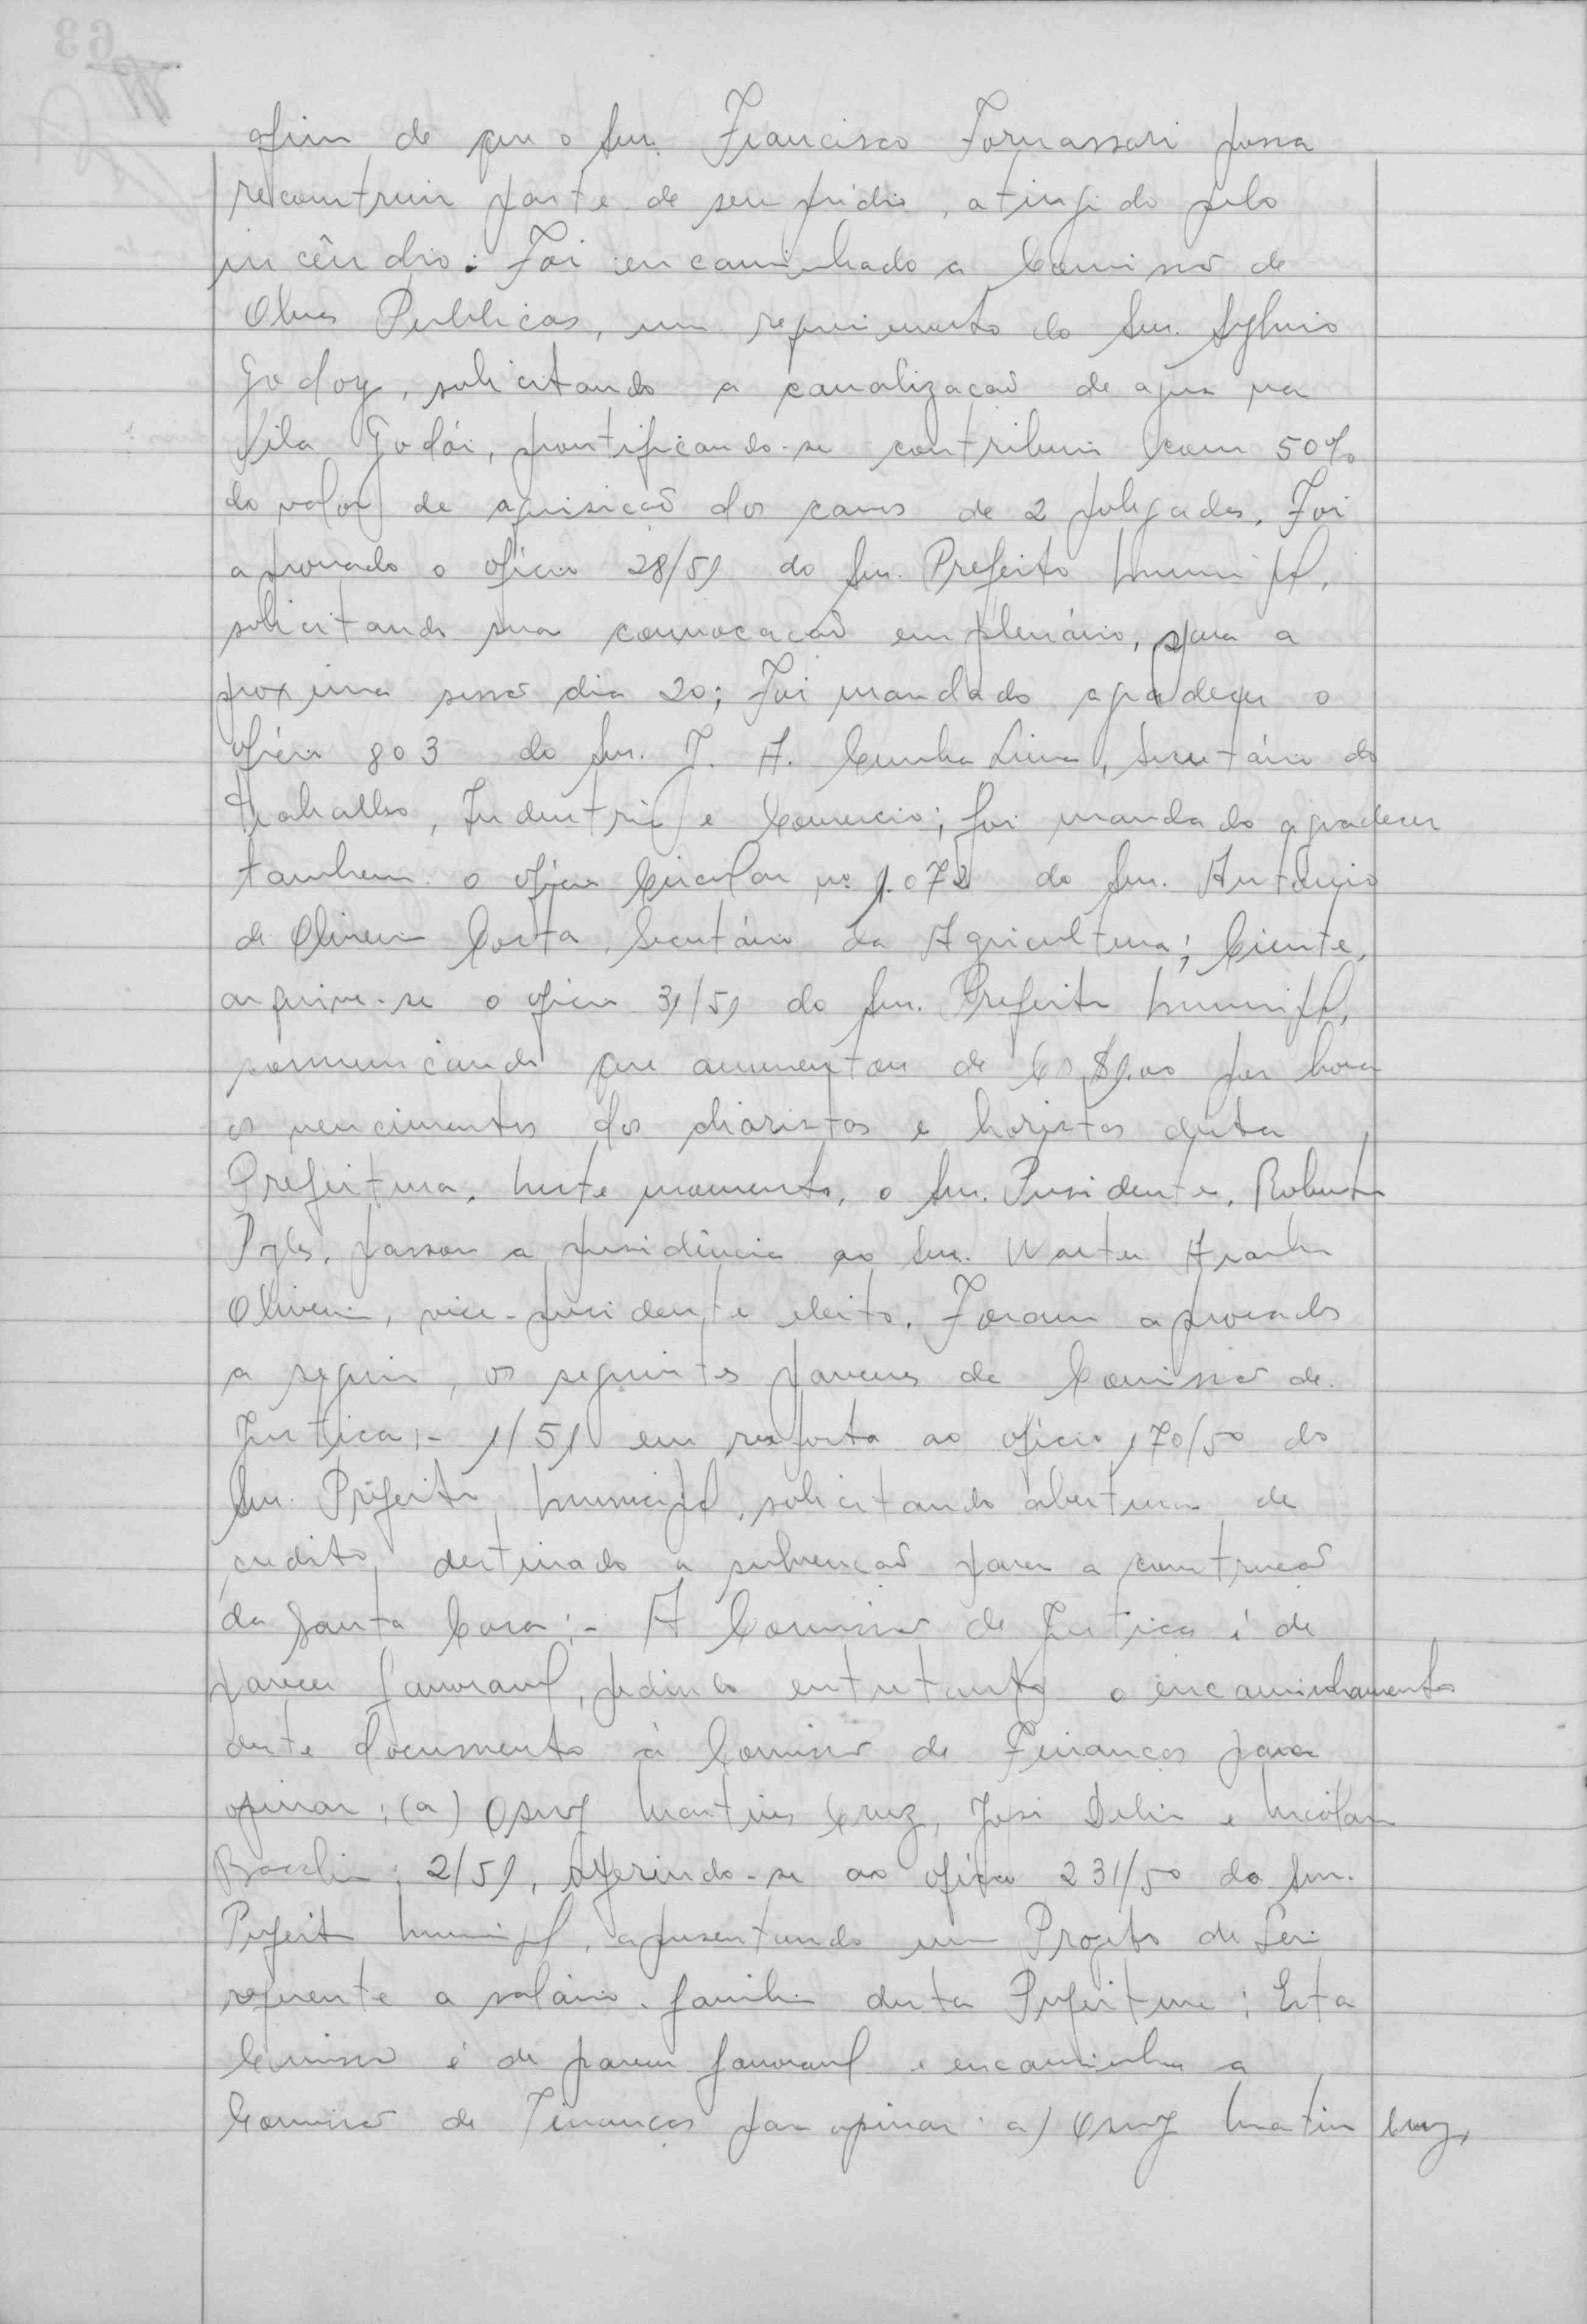 afim de que o Snr. Francisco Fornassari possa
reconstruir parte de seu prédio, atingido pelo
incêndio. Foi encaminhado a Comissão de
Obras Publicas, um requerimento do Snr. Sylvio
Godoy, solicitando a canalização de agua na
Vila Godói, prontificando-se contribuir com 50%
do valor de aquisição dos canos de 2 polegadas. Foi
aprovado o oficio 28/51 do Snr. Prefeito Municipal,
solicitando sua convocação em plenário, para a
proxima sessão dia 20; Foi mandado agradecer o
oficio 803 do Snr. J. A. Cunha Lima, Secretário do
Trabalho, Industria e Comercio; foi mandado agradecer
tambem o oficio Circular nº 1.072 do Snr. Antonio
de Oliveira Costa, Secretário da Agricultura; Ciente,
arquive-se o oficio 31/51 do Snr. Prefeito Municipal,
comunicando que aumentou de Cr$1,00 por hora
os vencimentos dos diaristas e horistas desta
Prefeitura. Neste momento, o Snr. Presidente, Roberto
Pyles, passou a presidência ao Snr. Walter Aranha
Oliveira, vice-presidente eleito. Foram aprovados
a seguir, os seguintes pareceres da Comissão de
Justiça:- 1/51 em resposta ao oficio 170/50 do
Snr. Prefeito Municipal, solicitando abertura de
credito destinado a subvenção para a construção
da Santa Casa:- A Comissão de Justiça é de
parecer favoravel, pedindo entretanto o encaminhamento
deste documento à Comissão de Finanças para
opinar: (a) Osny Martins Cruz, José Delia e Nicolau
2/51, referindo-se ao oficio 231/50 do Snr.
Prefeito Municipal, apresentando um Projeto de Lei
referente a salário-familia desta Prefeitura: Esta
Comissão é de parecer favoravel e encaminha a
Comissão de Finanças para opinar: a) Osny Martins Cruz,